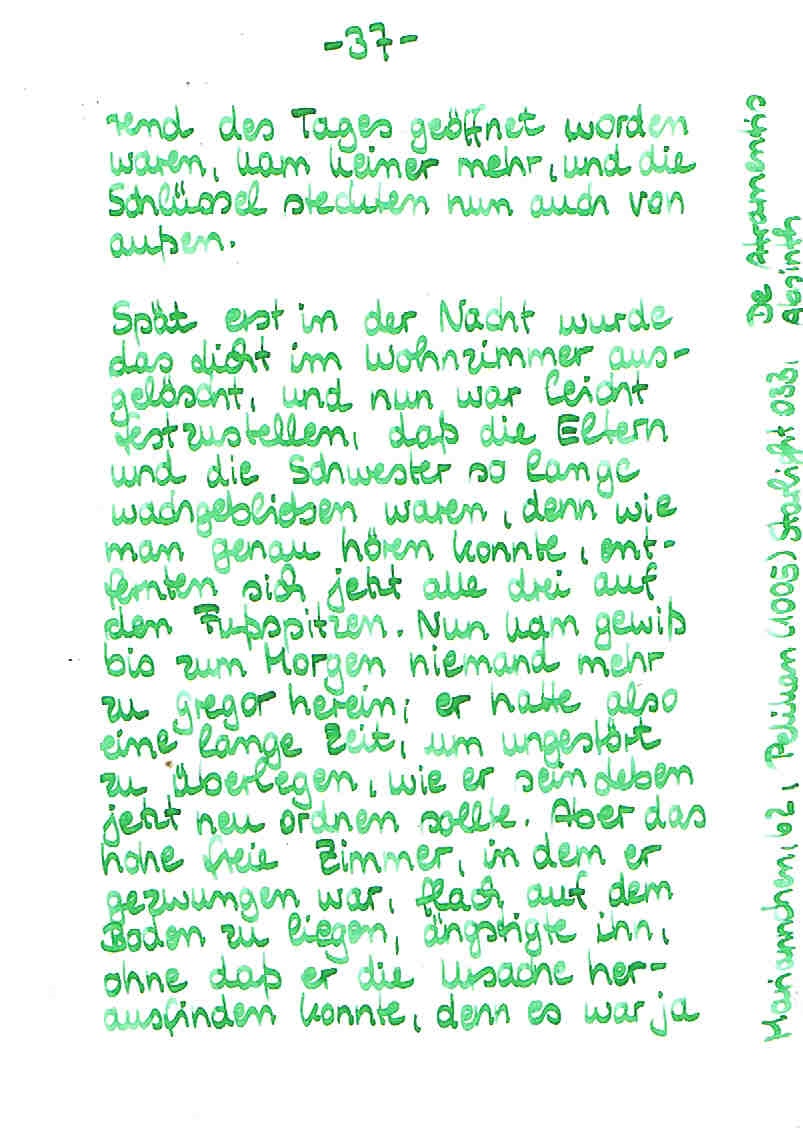 -37-
rend des Tages geöffnet worden
waren, kam keiner mehr, und die
Schlüssel steckten nun auch von
außen.
Spät erst in der Nacht wurde
das Licht im Wohnzimmer aus-
gelöscht, und nun war leicht
festzustellen, daß die Eltern
und die Schwester so lange
wachgeblieben waren, denn wie
man genau hören konnte, ent-
fernten sich jetzt alle drei auf
den Fußspitzen. Nun kam gewiß
bis zum Morgen niemand mehr
zu gregor herein; er hatte also
eine lange Zeit, um ungestört
zu überlegen, wie er sein Leben
jetzt neu ordnen sollte. Aber das
hohe freie Zimmer, in dem er
gezwungen war, flach auf dem
Boden zu liegen, ängstigte ihn,
ohne daß er die Ursache her-
ausfinden konnte, denn es war ja
Mariannchen, 62, Pelikan (1005) Starlight 033,
De Atramentis
Absinth